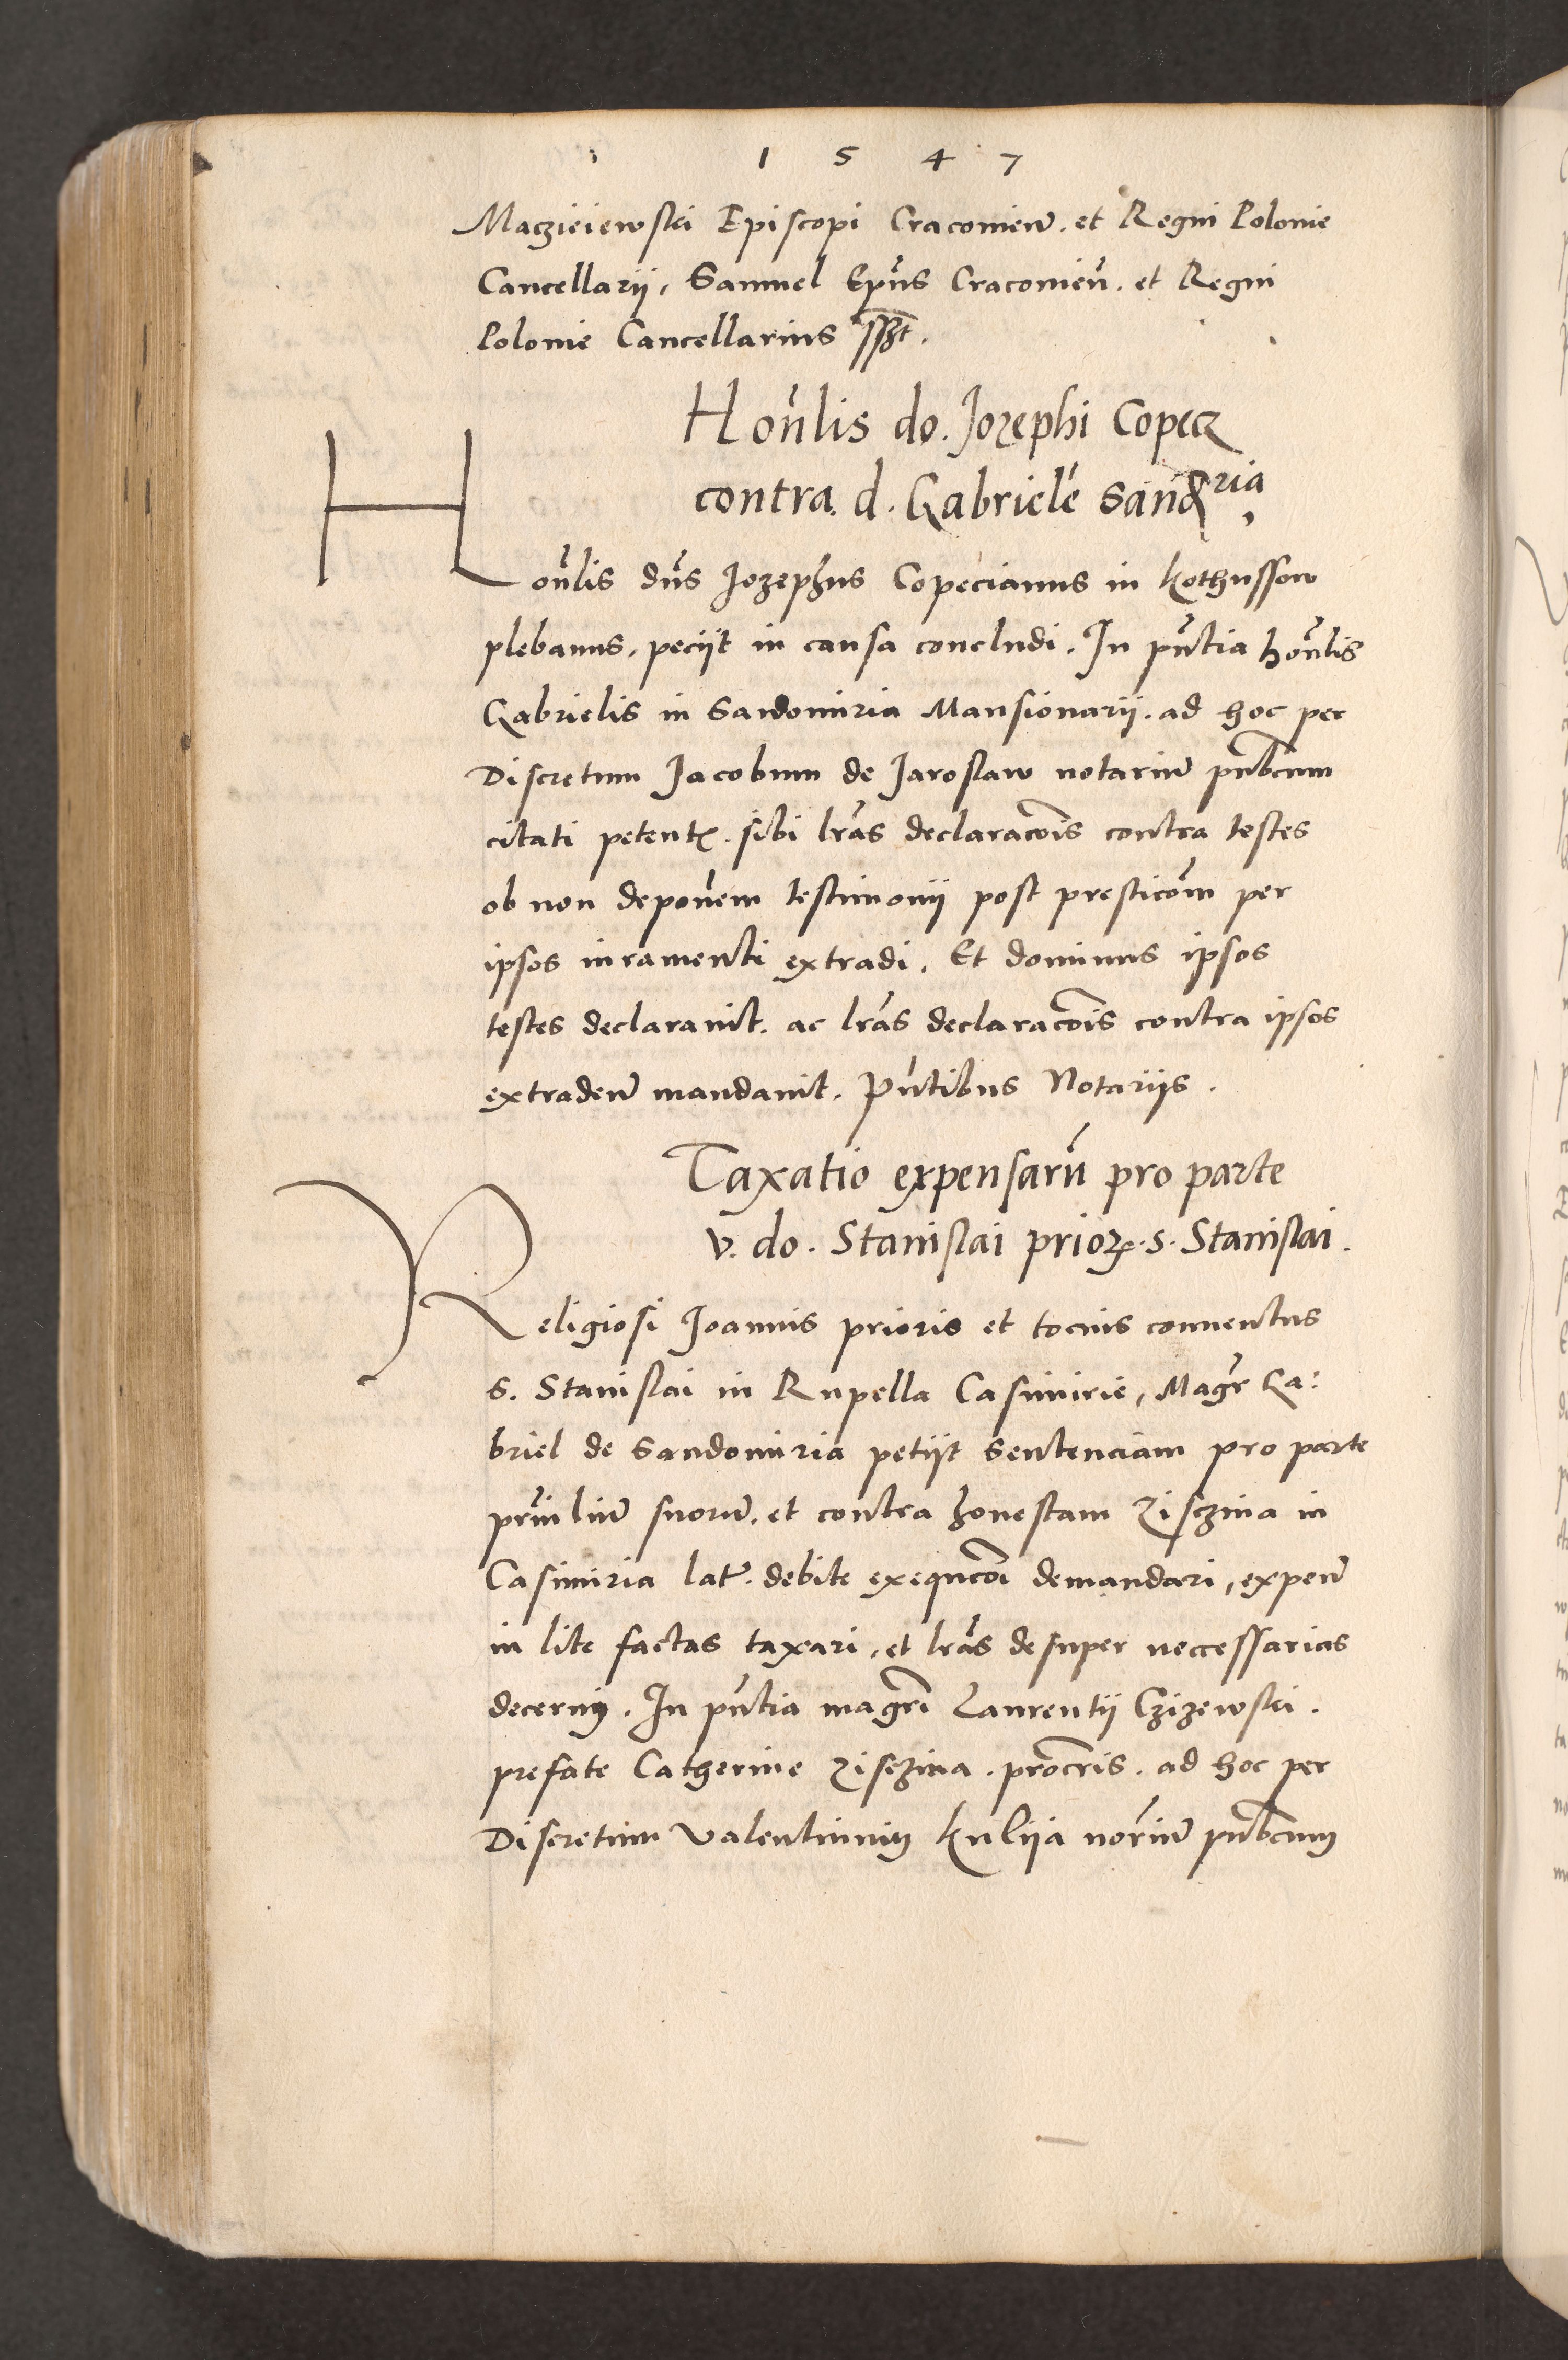 1 5 4 7
Maczieiewski Episcopi Cracovien̄. et Regni Polonie
Cancellarii, Samuel Ep̄us Cracovien̄. et Regni
Polonie Cancellarius sszt.
Hon̄lis do. Jozephi Copecz
contra d. Gabrielē Sandria
Hon̄lis dn̄s Jozephus Copecianus in Kothussow
plebanus, peciit in causa concludi. In pn̄tia hon̄lis
Gabrielis in Sandomiria Mansionarii. ad hoc per
Discretum Jacobum de Jaroslaw notariū pub̄cum
citati petent̄. sibi lr̄as declarac̄ois contra testes
ob non depon̄em testimonii post presticōm per
ipsos iuramenti extradi. Et dominus ipsos
testes declaravit. ac lr̄as declarac̄ois contra ipsos
extraden̄ mandavit. Pn̄tibus Notariis.
Taxatio expensarū pro parte
v. do. Stanislai prior. s. Stanislai.
Religiosi Joannis prioris et tocius conventus
S. Stanislai in Rupella Casimirie, Magr̄ Ga:
briel de Sandomiria petiit Sentenciam pro parte
prīn̄liū suorū. et contra honestam Zisczina in
Casimiria lat̄. debite exequc̄oi demandari, expen̄
in lite factas taxari, et lr̄as desuper neccessarias
decerni. In pn̄tia magr̄i Laurentii Czizewski.
prefate Catherine Zisczina. procr̄is. ad hoc per
Discretum Valentinum Kulija nor̄iū pub̄cum